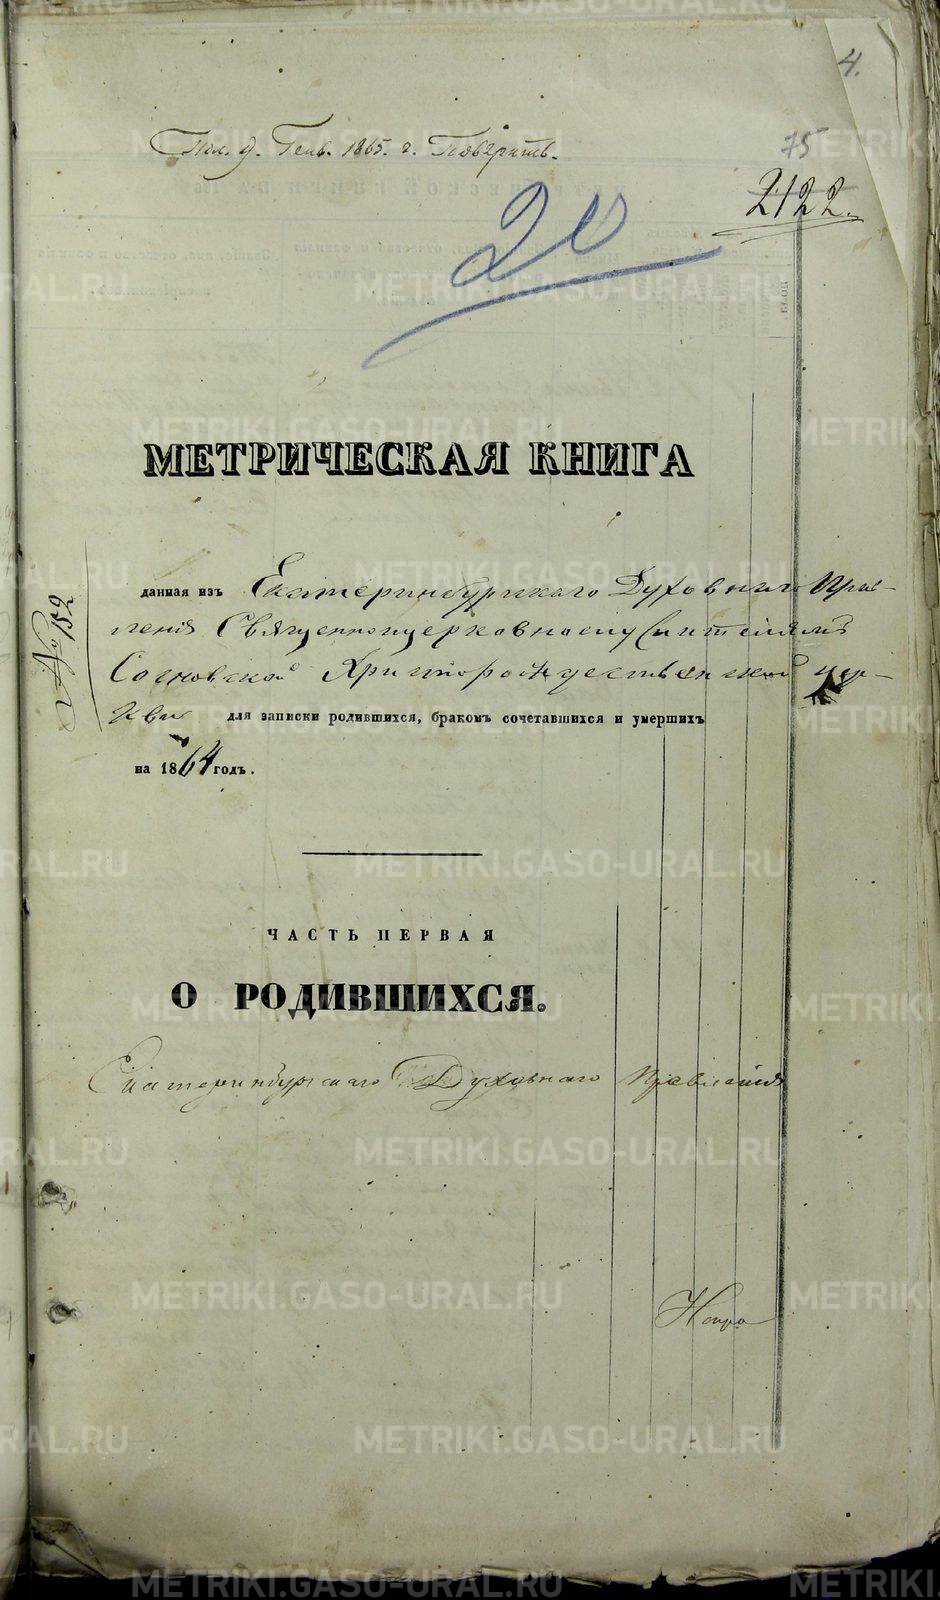 4.
Пол. 9. Генв. 1865. г. Поверить.
75
2122.
20
МЕТРИЧЕСКАЯ КНИГА
№ 152
данная изъ Екатеринбургскаго Духовнаго Прав-
ленія Священноцерковнослужителямъ
Сосновской Христорождественской цер-
кви для записки родившихся, бракомъ сочетавшихся и умершихъ
на 1864 годъ.
ЧАСТЬ ПЕРВАЯ
О РОДИВШИХСЯ.
Екатеринбургскаго Духовнаго Правленія
METRIKI.GASO-URAL.RU